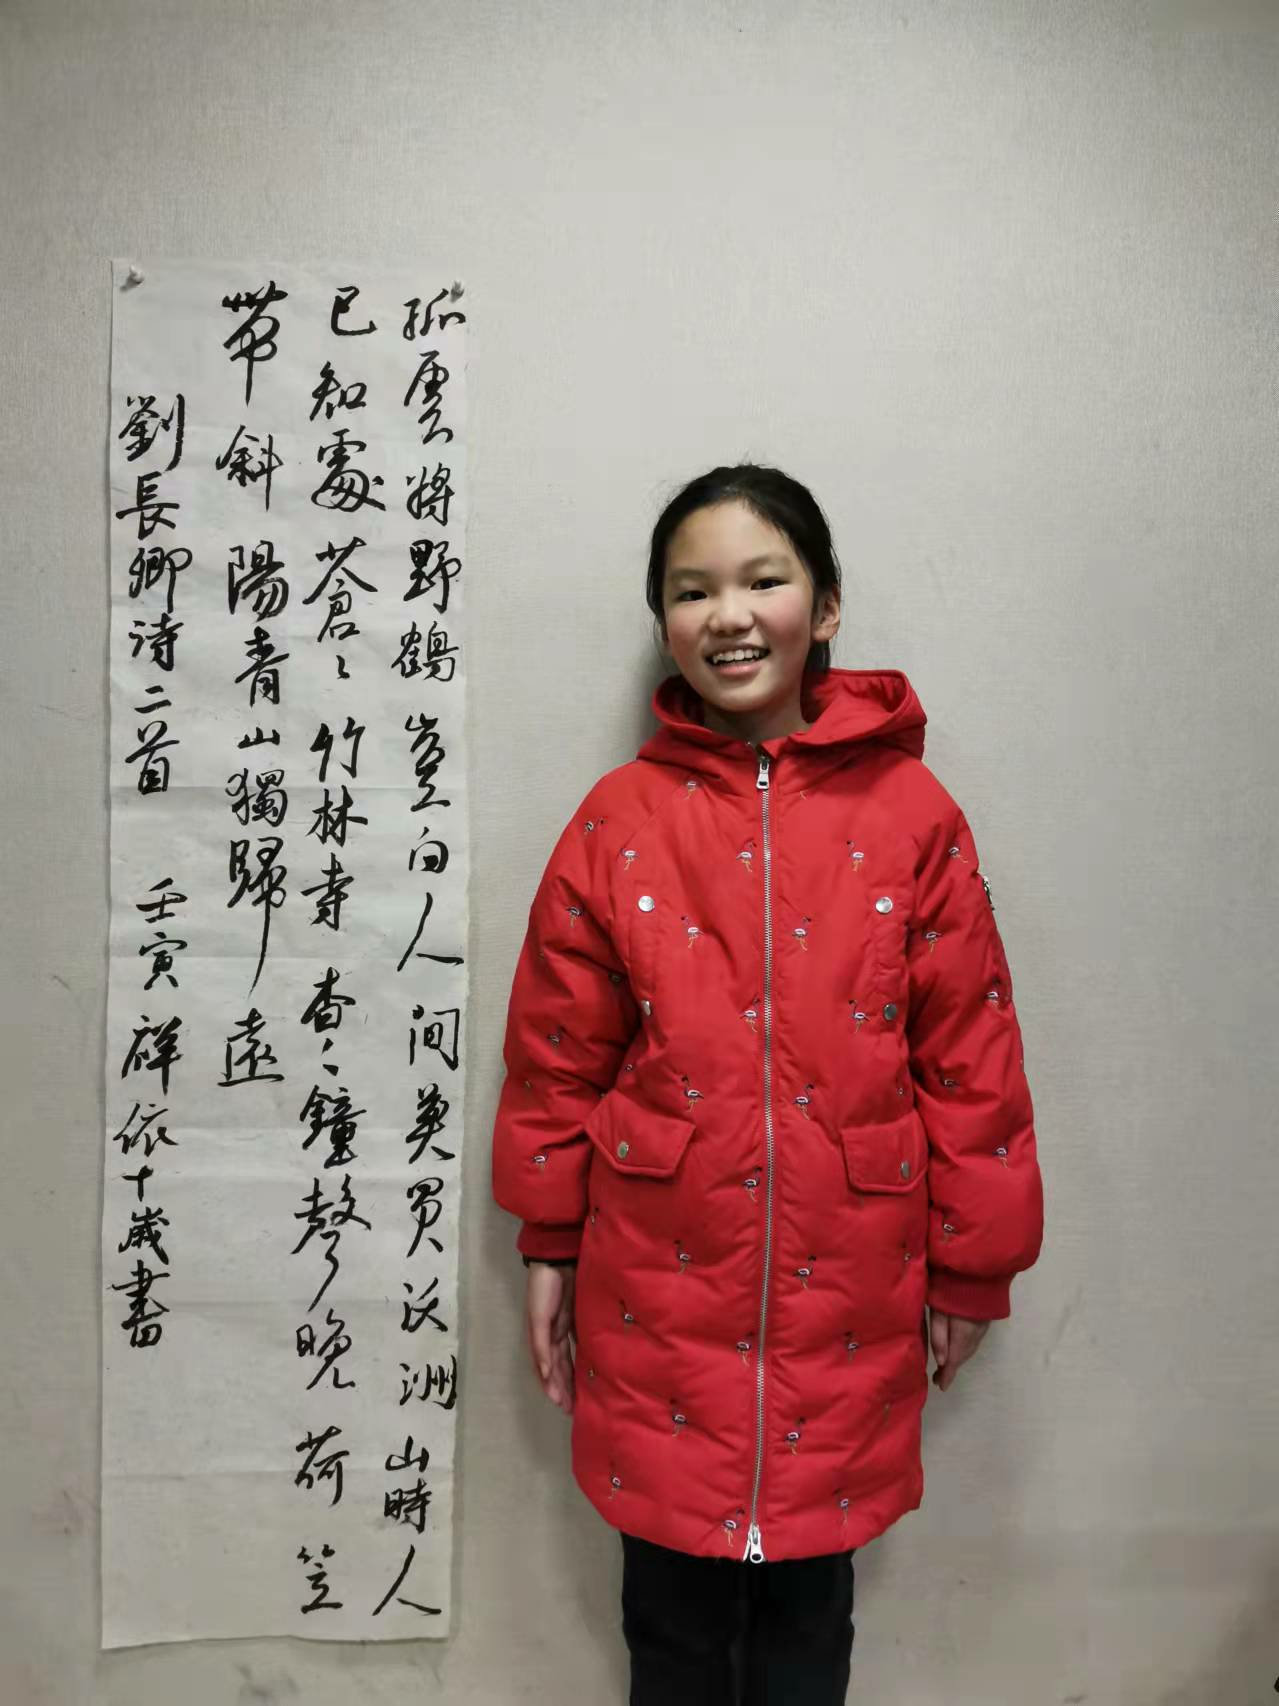 孤雲將野鶴豈向人間英買沃洲山時人
已知處蒼〻竹林寺杳〻鐘聲晚荷笠
帶斜陽青山獨歸遠
劉長卿詩二首 壬寅祥依十歲書